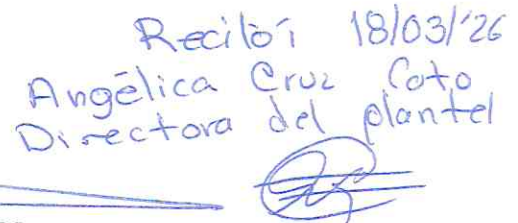 Recibí 18/03/'26
Angélica Cruz Coto
Directora del plantel